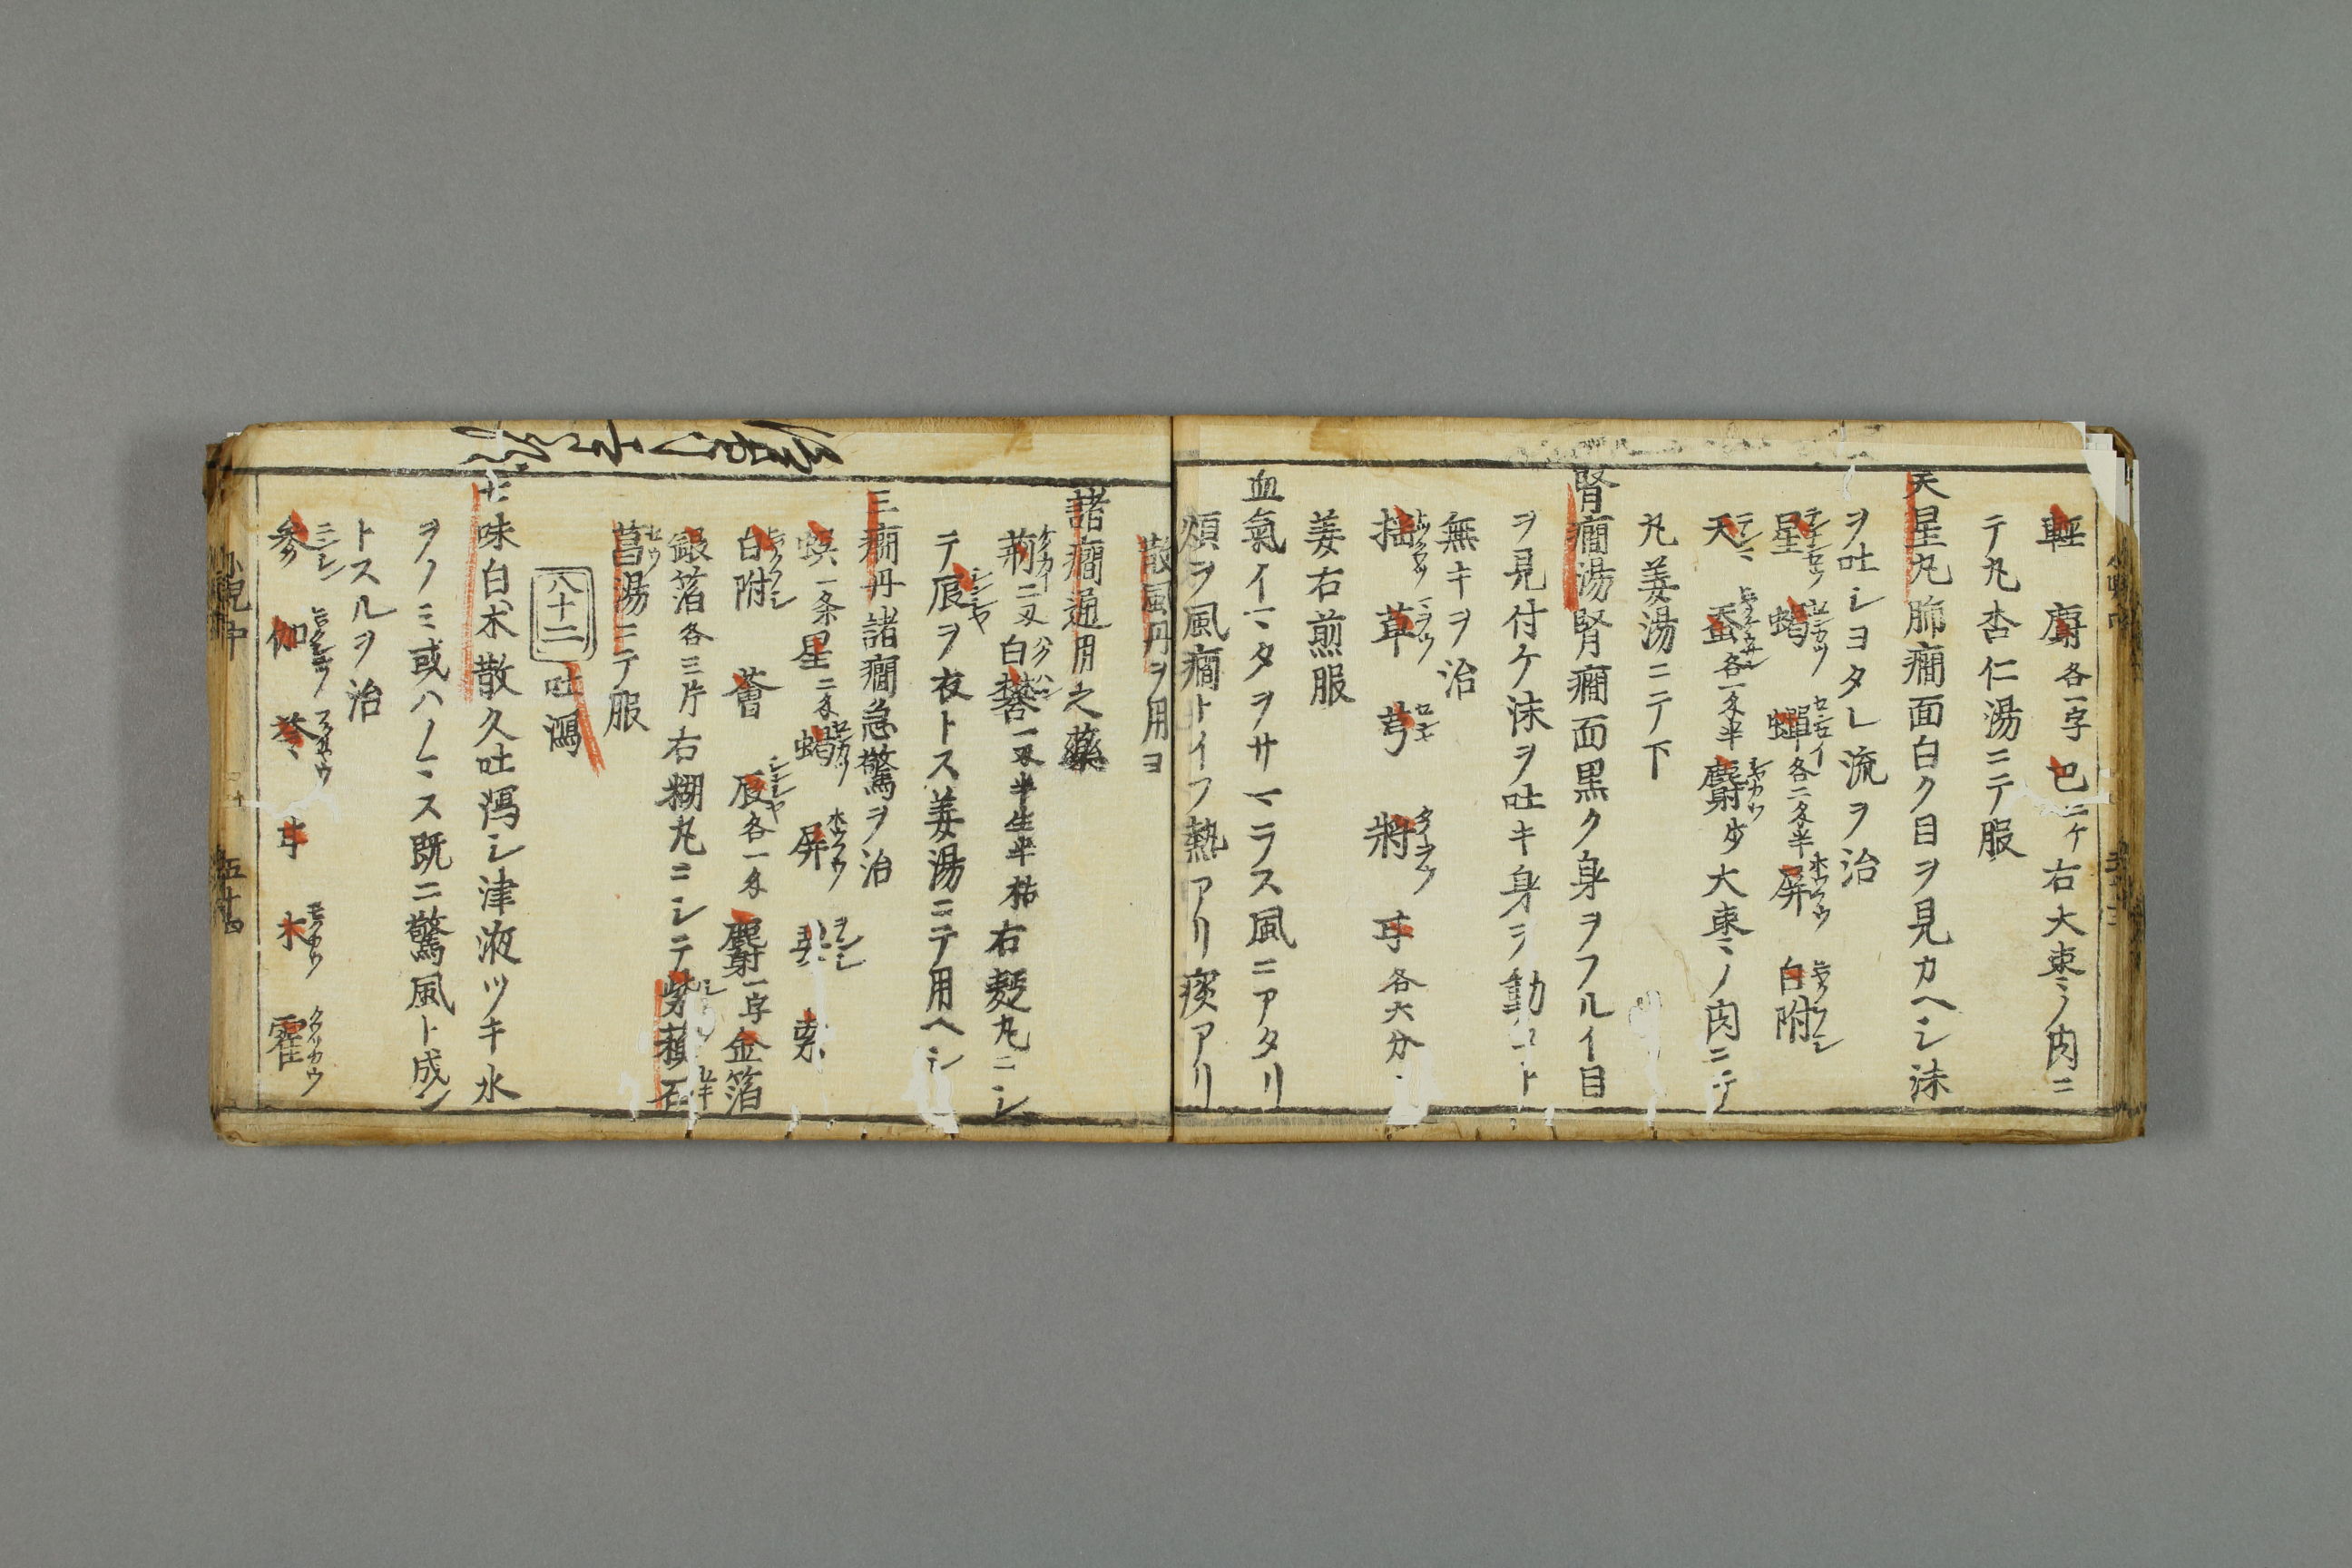 輕 麝各一字巴二ケ右大棗ノ肉ニ
テ丸杏仁湯ニテ服
天星丸肺癇面白ク目ヲ見カヘシ沫
ヲ吐シヨタレ流ヲ治
星 蝎 蟬各二匁半屏 白附
天 蚕各一匁半麝少大棗ノ肉ニテ
丸姜湯ニテ下
腎癇湯腎癇面黒ク身ヲフルイ目
ヲ見付ケ沫ヲ吐キ身ヲ動コト
無キヲ治
 草 芎 將 各六分
姜右煎服
血氣イマタヲサマラス風ニアタリ
煩ヲ風癇トイフ熱アリ痰アリ
散風丹ヲ用ヨ
諸癇通用之藥
荊二又白礬一又半生半枯右麪丸ニシ
テ辰ヲ衣トス姜湯ニテ用ヘシ
三癇丹諸癇急驚ヲ治
蜈一条星二匁蝎 屏
白附 薈 辰各一匁麝一字金箔
銀箔各三片右糊丸ニシテ紫 石
菖湯ニテ服
八十二 吐瀉
七味白朮散久吐瀉シ津液ツキ水
ヲノミ或ハノマス既ニ驚風ト成ン
トスルヲ治
参 伽 苓 木 霍
小兒中 五十四